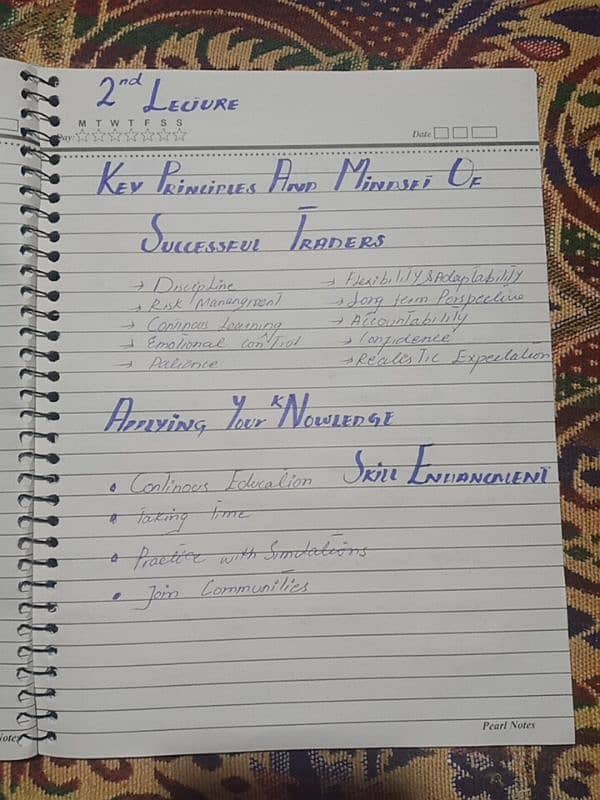 2nd Lecture
M T W T F S S
Day:
Date
Key Principles And Mindset Of
Successful Traders
→ Discipline → Flexibility & Adaptability
→ Risk Manangment → Long term Perspective
→ Continous Learning → Accountability
→ Emotional control → Confidence
→ Patience → Realestic Expectation
Applying Your kNowledge
Skill Enhancment
• Continous Education
• Taking Time
• Practice with Simulations
• Join Communities
Pearl Notes